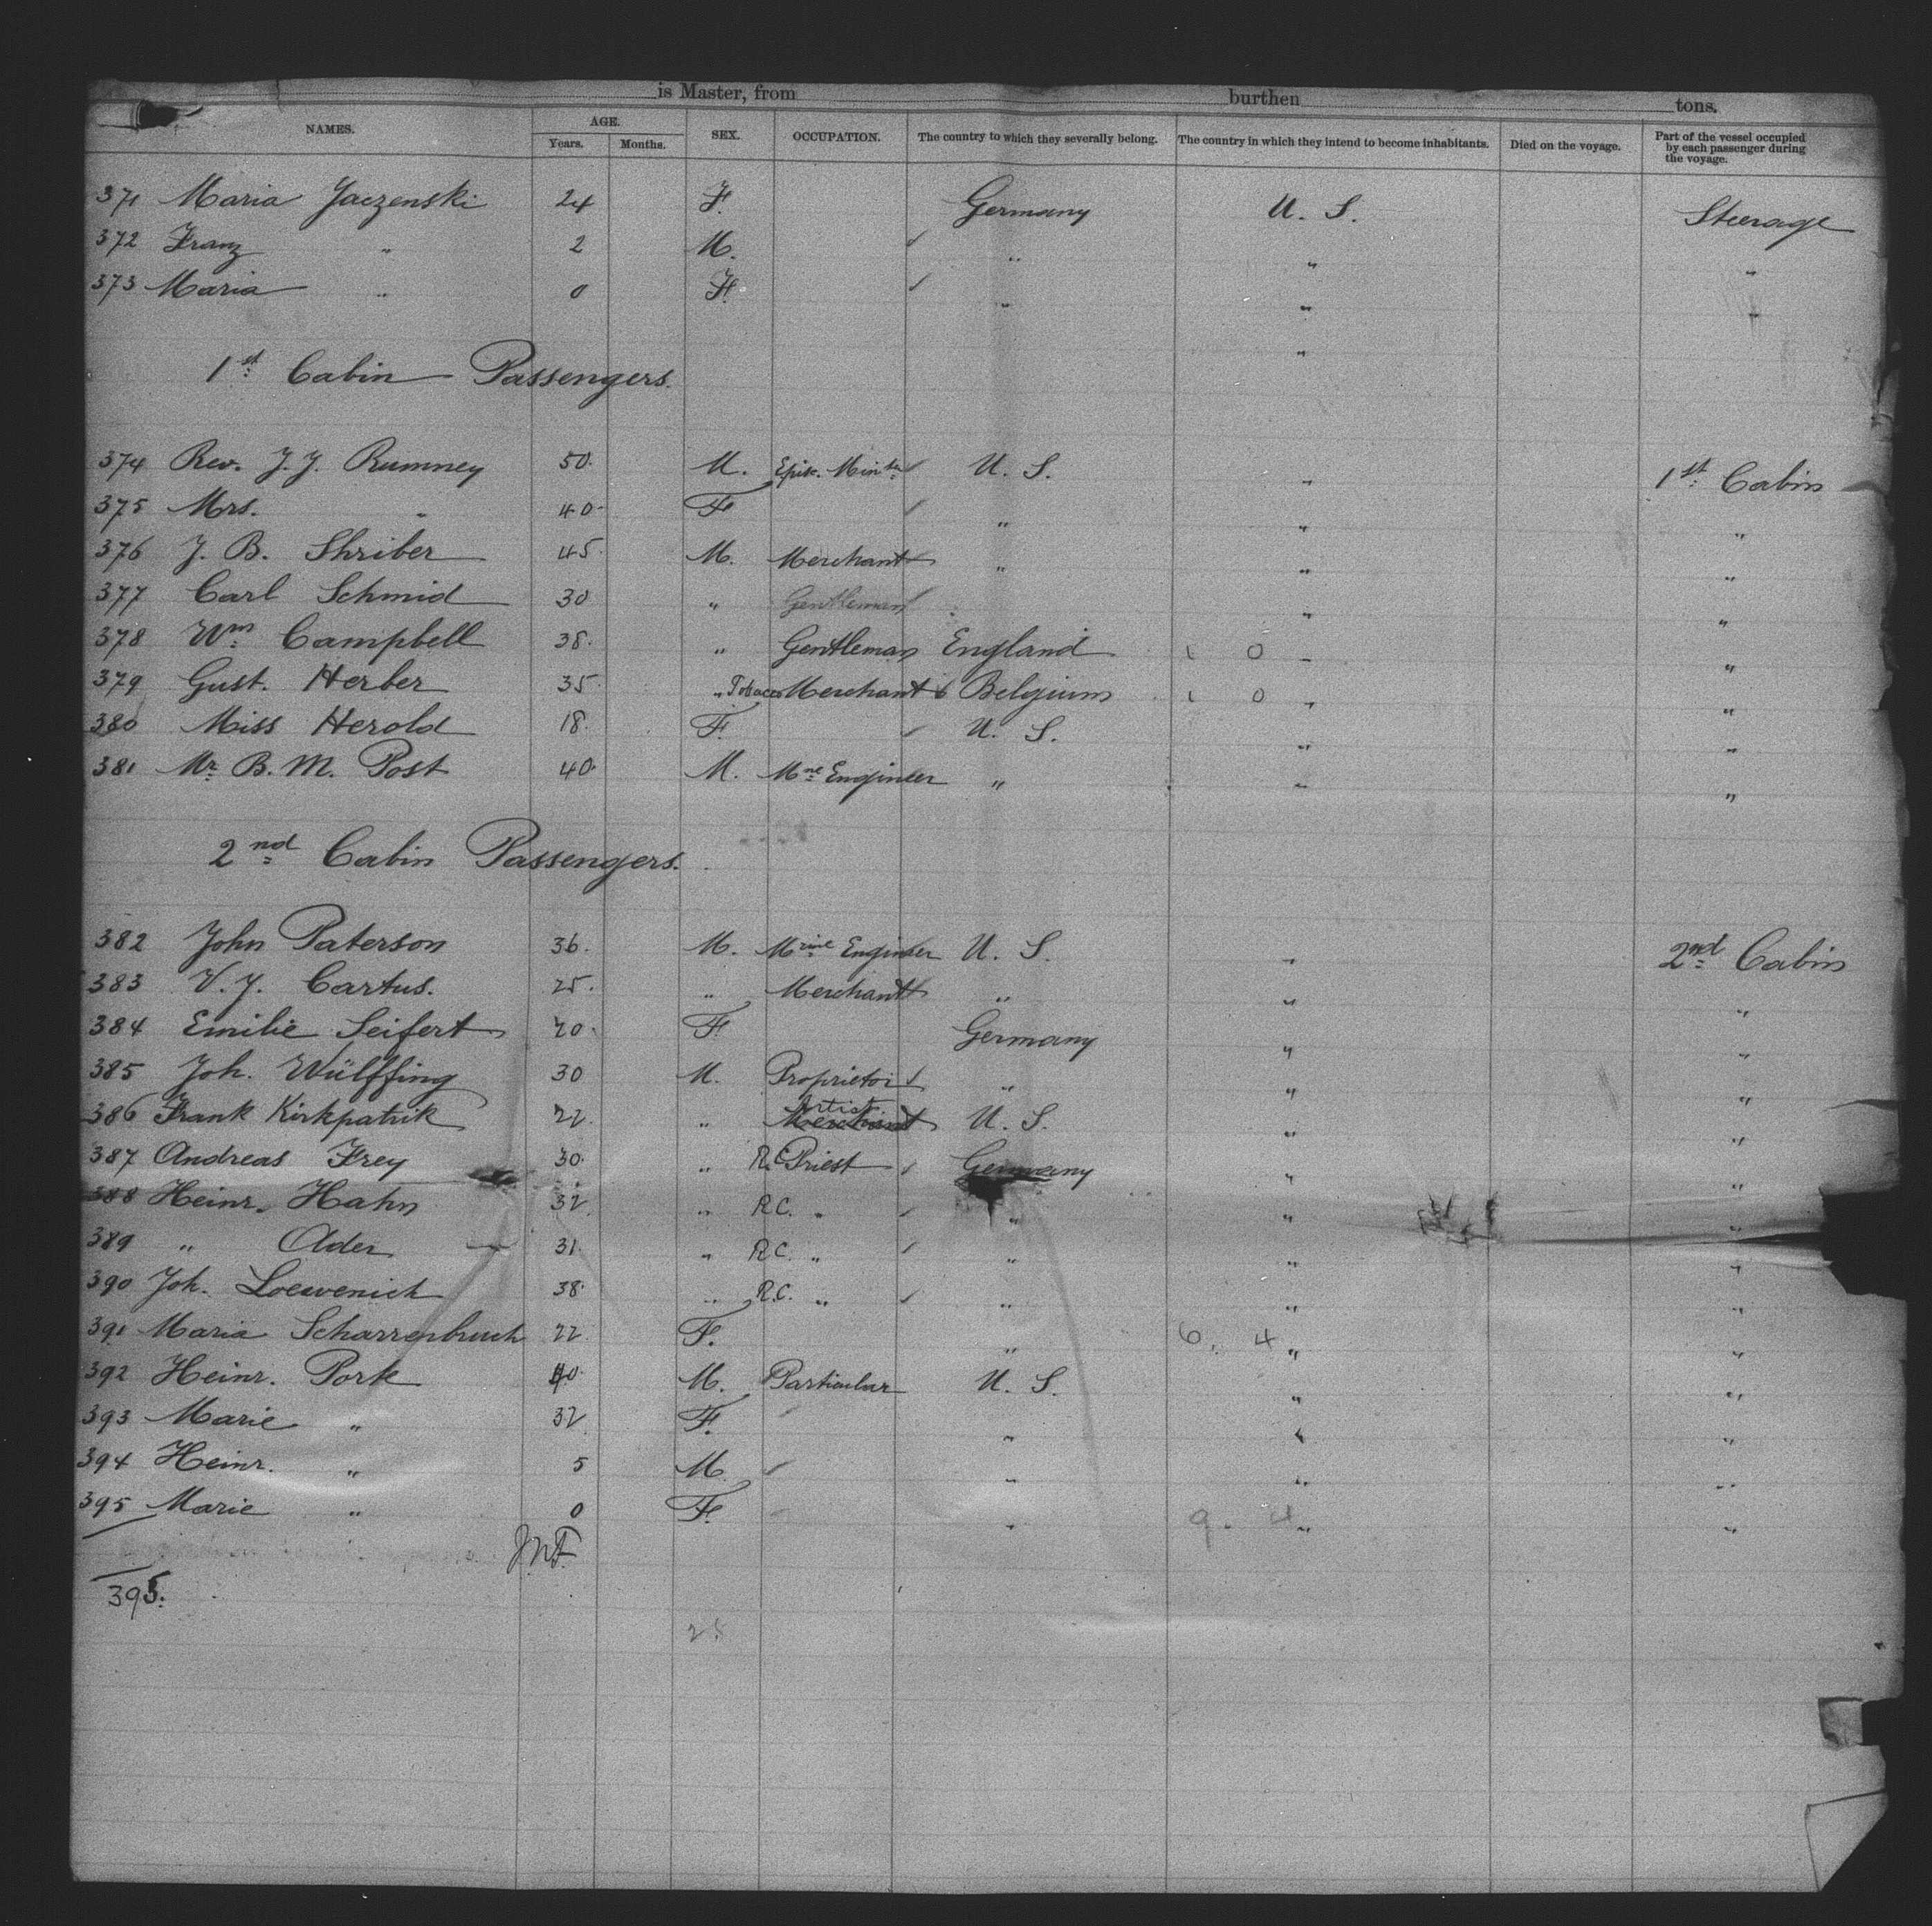 is Master, from burthen tons.
NAMES. AGE. Years. Months. SEX. OCCUPATION. The country to which they severally belong. The country in which they intend to become inhabitants. Died on the voyage. Part of the vessel occupied by each passenger during the voyage.
371 Maria Jaczenski 24 F. Germany U. S. Steerage
372 Franz " 2 M. " " "
373 Maria " 0 F. " " "
"
1st Cabin Passengers.
374 Rev. J. J. Rumney 50. M. Epis. Minister U. S. " 1st Cabin
375 Mrs. " 40. F " " "
376 J. B. Shriber 45. M. Merchant " " "
377 Carl Schmid 30 " Gentleman " "
378 Wm. Campbell 38. " Gentleman England 1 0 " "
379 Gust. Herber 35. " Tobacco Merchant Belgium 1 0 " "
380 Miss Herold 18. F. U. S. " "
381 Mr. B. M. Post 40. M. Mne Engineer " " "
2nd Cabin Passengers.
382 John Paterson 36. M. Mrine Engineer U. S. " 2nd Cabin
383 V. J. Cartus. 25. " Merchant " " "
384 Emilie Seifert 20. F Germany " "
385 Joh. Wülffing 30 M. Proprietor " " "
386 Frank Kirkpatrik 22. " Merchant Artist. U. S. " "
387 Andreas Frey 30. " R.C. Priest Germany " "
388 Heinr. Hahn 32. " R.C. " " " "
389 " Ader 31. " R.C. " " " "
390 Joh. Loevenich 38. " R.C. " " " "
391 Maria Scharrenbruch 22. F. " 6. 4 " "
392 Heinr. Pork 40. M. Particular U. S. " "
393 Marie " 32. F. " " "
394 Heinr. " 5 M. " " "
395 Marie " 0 F. " 9. 4 " "
395.